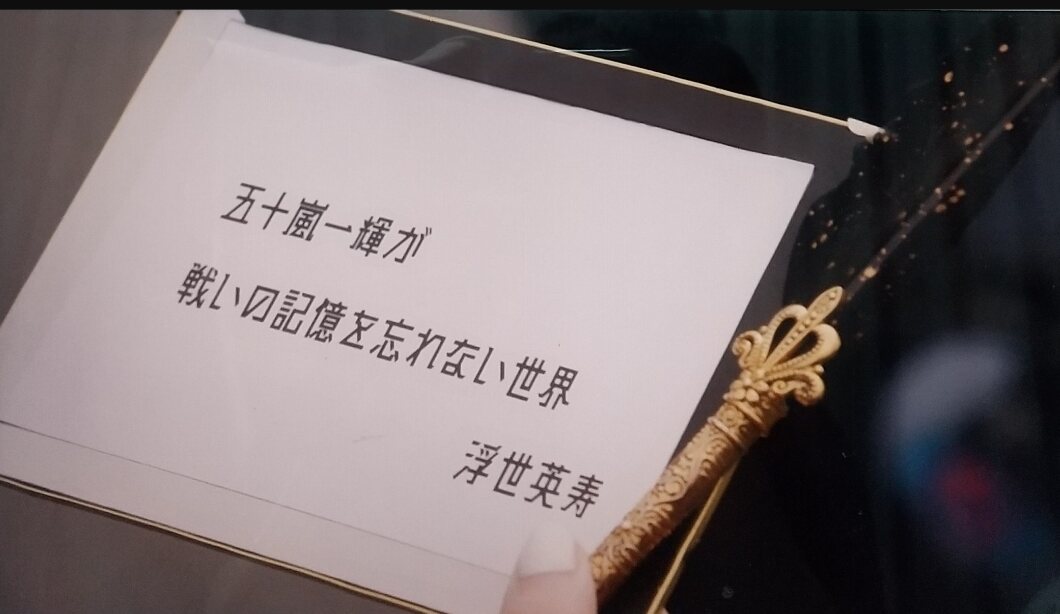 五十嵐一輝が
戦いの記憶を忘れない世界
浮世英寿